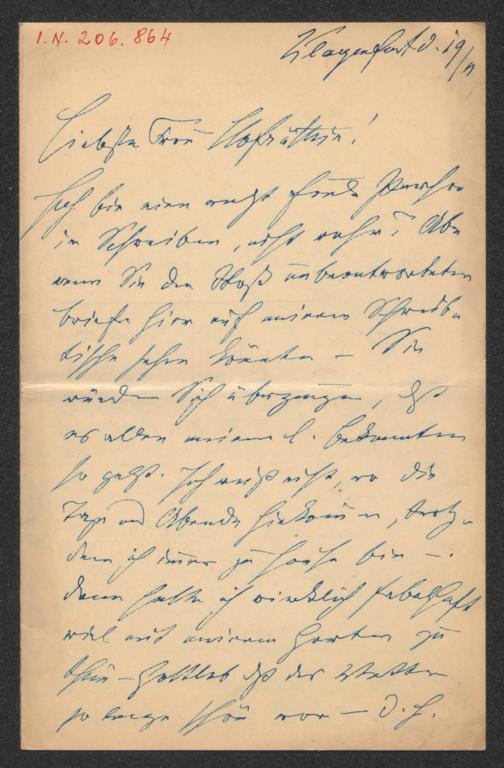 I.N. 206.864
Klagenfurt d. 19/
Liebste Frau Hofräthin!
Ich bin eine recht faule Person
im Schreiben, nicht wahr? Aber
wenn Sie den Stoß unbeantworteter
Briefe hier auf meinem Schreib-
tische sehen könnten – Sie
würden Sich überzeugen, daß
es allen meinen l. Bekannten
so geht. Ich weiß nicht, wo die
Tage und Abende hinkommen, trotz-
dem ich immer zu Hause bin –.
Dann hatte ich wirklich fabelhaft
viel mit meinem Garten zu
thun – Gottlob daß das Wetter
so lange schön war – d. h.